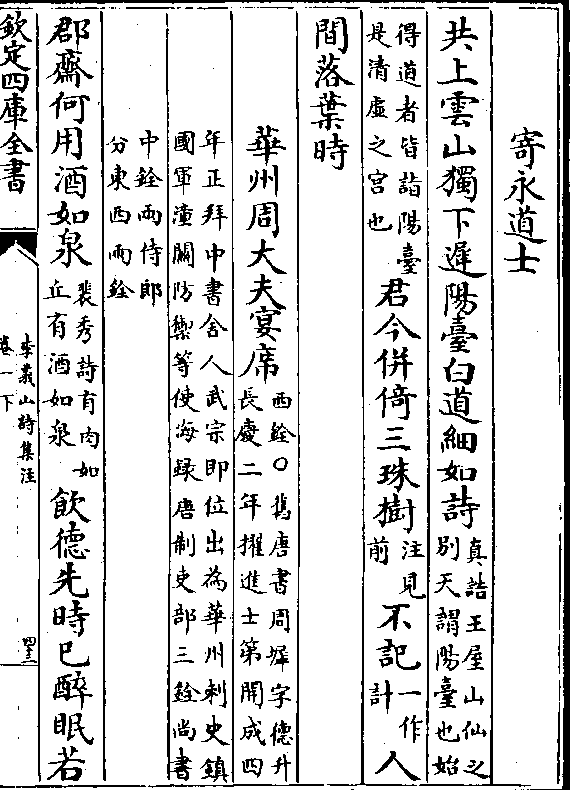 寄永道士
共上雲山獨下遲陽臺白道細如詩真誥王屋山仙之
別天謂陽臺也始
得道者皆詣陽臺
是清虛之宮也君今併倚三珠樹注見
前不記一作
計人
間落葉時
華州周大夫宴席西銓○舊唐書周墀字德升
長慶二年擢進士第開成四
年正拜中書舍人武宗即位出為華州刺史鎮
國軍潼關防禦等使海録唐制吏部三銓尚書
中銓兩侍郎
分東西兩銓
郡齋何用酒如泉裴秀詩有肉如
丘有酒如泉飲德先時已醉眠若
欽定四庫全書
李義山詩集注
卷一下
四三